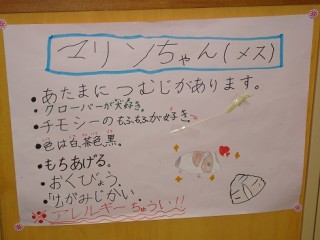 マリンちゃん(メス)
•あたまに つむじがあります。
•クローバーが大好き。
•チモシーのもふもふが好き
•色は白、茶色、黒。
•もちあげる。
•おくびょう。
•けがみじかい。
アレルギーちゅうい!!